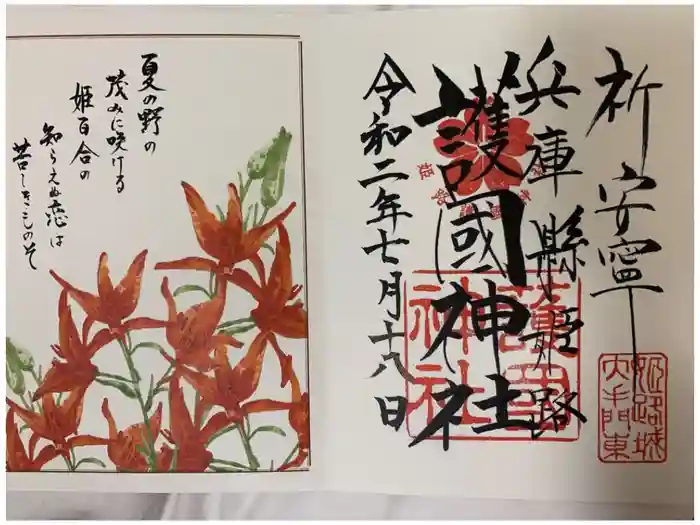 祈安寧
兵庫縣姫路
護國神社
令和二年七月十八日
姫路城
大手門東
護国
神社
夏の野の
茂みに咲ける
姫百合の
知らえぬ恋は
苦しきものぞ